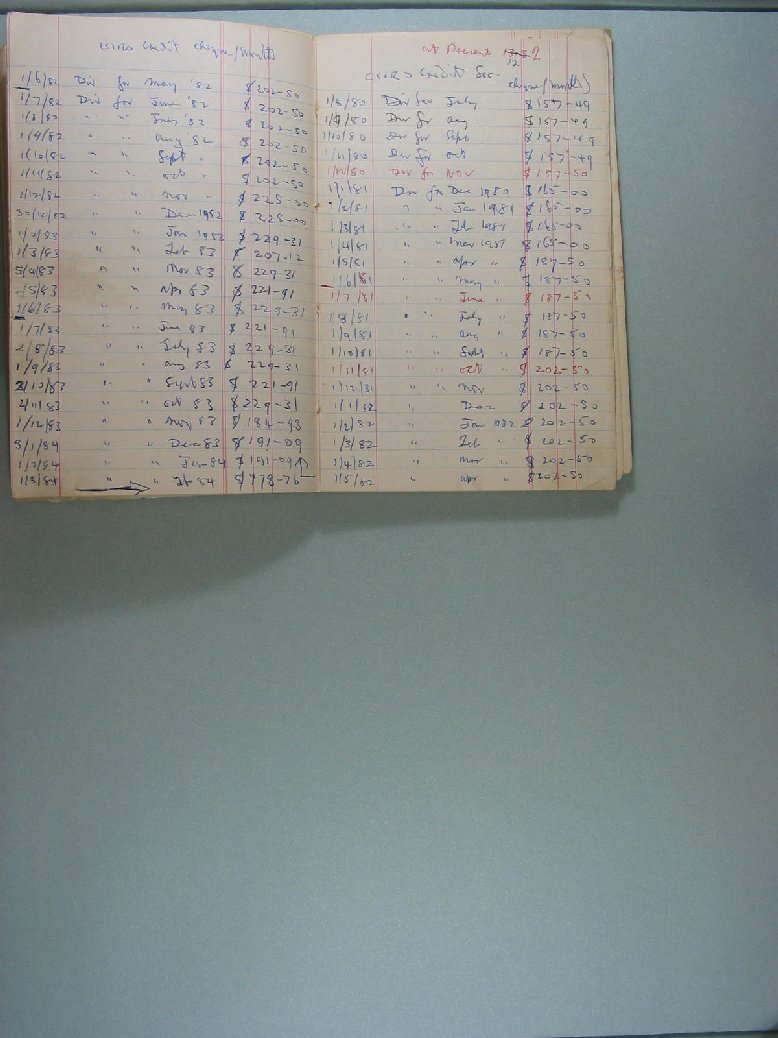 Credit cheque/months
1/6/82 Div for May '82 $202-50
1/7/82 Div for June '82 $202-50
1/8/82 " " July '82 $202-50
1/9/82 " " Aug 82 $202-50
1/10/82 " " Sept " $202-50
1/11/82 " " Oct " $202-50
1/12/82 " " Nov " $225-00
30/12/82 " " Dec 1982 $225-00
1/2/83 " " Jan 1983 $229-31
1/3/83 " " Feb 83 $207-12
5/4/83 " " Mar 83 $229-31
2/5/83 " " Apr 83 $221-91
1/6/83 " " May 83 $229-31
1/7/83 " " June 83 $221-91
2/8/83 " " July 83 $229-31
1/9/83 " " Aug 83 $229-31
2/10/83 " " Sept 83 $221-91
2/11/83 " " Oct 83 $229-31
1/12/83 " " Nov 83 $184-93
3/1/84 " " Dec 83 $191-09
1/2/84 " " Jan 84 $191-09
1/3/84 " " Feb 84 $178-76
at Present 12
Credit Soc-
cheque/months)
1/8/80 Div for July $157-49
1/9/80 Div for Aug $157-49
1/10/80 Div for Sept $157-49
1/11/80 Div for Oct $157-49
1/12/80 Div for Nov $157-50
1/1/81 Div for Dec 1980 $165-00
2/2/81 " " Jan 1981 $165-00
1/3/81 " " Feb 1981 $165-00
1/4/81 " " Mar 1981 $165-00
1/5/81 " " Apr " $187-50
1/6/81 " " May " $187-50
1/7/81 " " June " $187-50
1/8/81 " " July " $187-50
1/9/81 " " Aug " $187-50
1/10/81 " " Sept " $187-50
1/11/81 " " Oct " $202-50
1/12/81 " " Nov $202-50
1/1/82 " Dec $202-50
1/2/82 " Jan 1982 $202-50
1/3/82 " Feb " $202-50
1/4/82 " Mar " $202-50
1/5/82 " Apr " $202-50